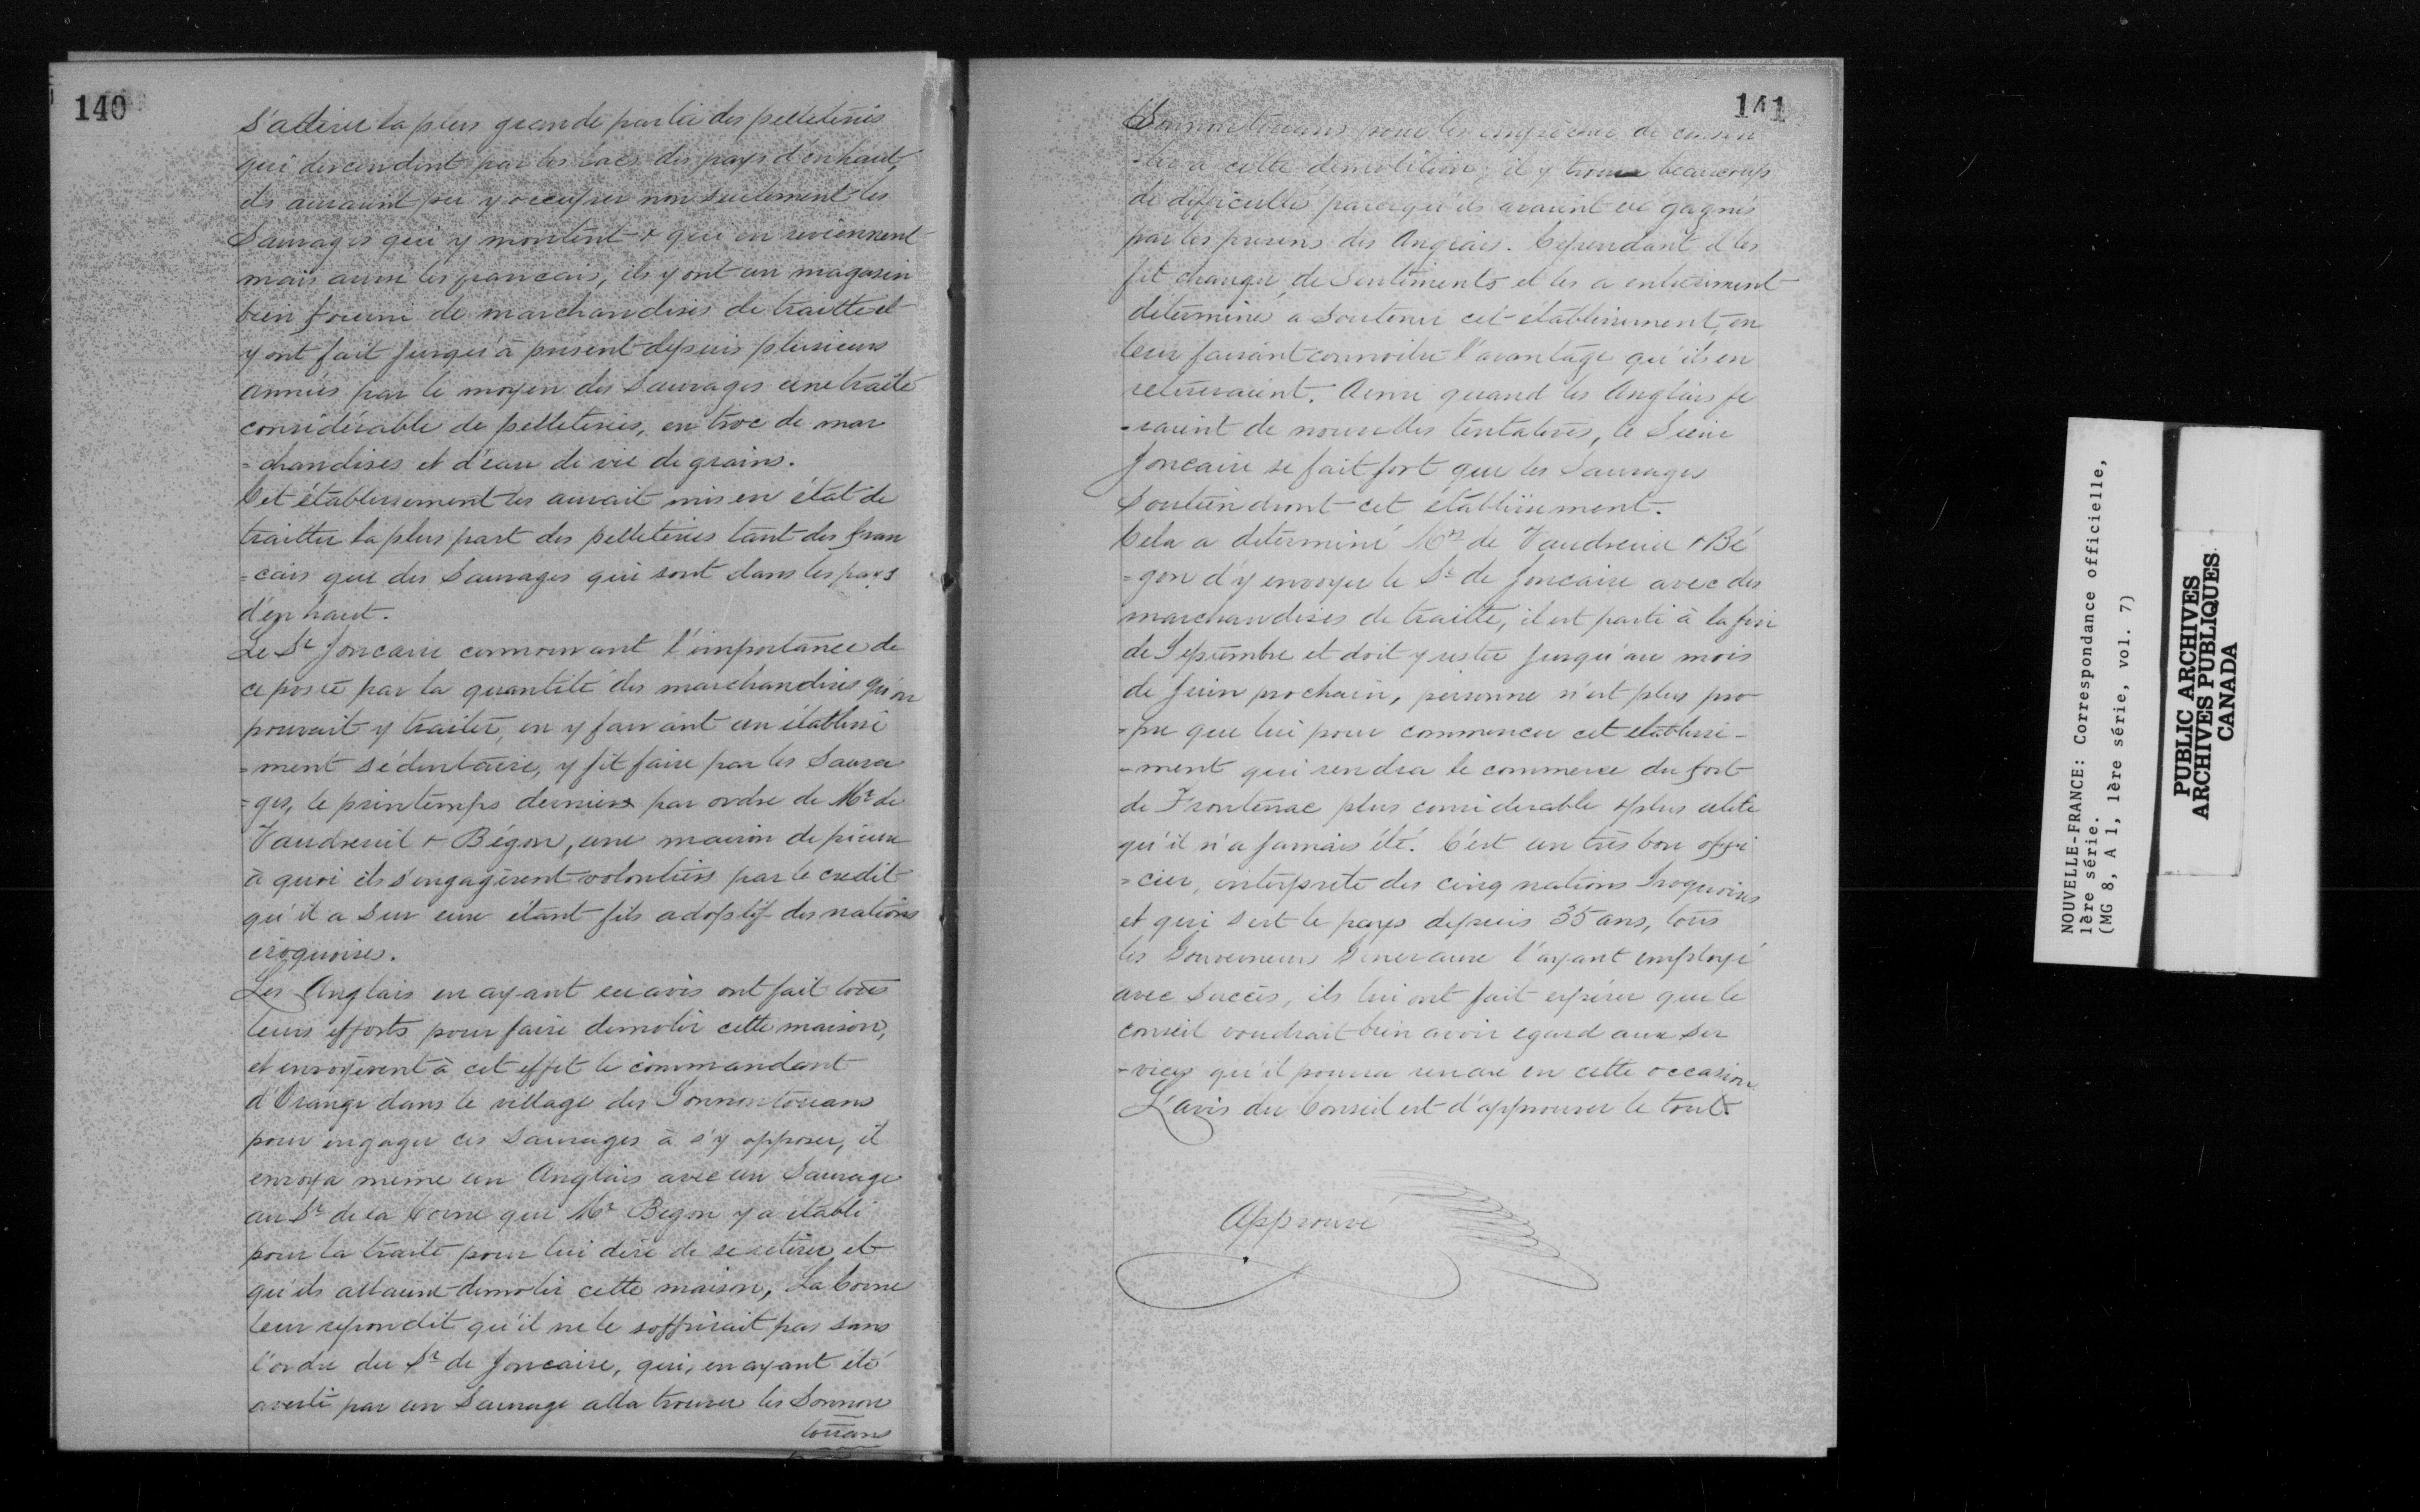 140
s'attirer la plus grande partie des pelleteries
qui descendent par les lacs des pays d'en haut,
ils auraient pu y occuper non seulement les
Sauvages qui y montent & qui en reviennent
mais aussi les francais, ils y ont un magasin
bien fourni de marchandises de traitte et
y ont fait jusqu'à présent depuis plusieurs
années par le moyen des Sauvages une traite
considérable de pelleteries, en troc de mar
=chandises et d'eau de vie de grains.
Cet établissement les aurait mis en état de
traitter la plus part des pelleteries tant des fran
=cais que des Sauvages qui sont dans les pays
d'en haut.
Le Sr Joncaire connoissant l'importance de
ce poste par la quantité des marchandises qu'on
pouvait y traiter, en y faisant un établisse
=ment sédentaire, y fit faire par les Sauva
=ges, le printemps dernier par ordre de Mr de
Vaudreuil & Bégon, une maison de pieux
à quoi ils s'engagèrent volontiers par le credit
qu'il a sur eux étant fils adoptif des nations
iroquoises.
Les Anglais en ayant eu avis ont fait tous
leurs efforts pour faire demolir cette maison,
et envoyèrent à cet effet le commandant
d'Orange dans le village des Sonnontouans
pour engager ces Sauvages à s'y opposer, il
envoya meme un Anglais avec un Sauvage
au Sr de la Corne que Mr Begon y a établi
pour la traite pour lui dire de se retirer et
qu'ils allaient demolir cette maison, La Corne
leur repondit qu'il ne le soffrirait pas sans
l'ordre du Sr de Joncaire, qui, en ayant été
averti par un Sauvage alla trouver les Sonnon
touans
141
Sonnontouans pour les empecher de consen
-tir à cette demolition; il y trouva beaucoup
de difficulté parcequ'ils avaient été gagnés
par les presens des Anglais. Cependant il les
fit changer de Sentiments et les a entierement
determiné à soutenir cet établissement, en
leur faisant connoitre l'avantage qu'ils en
retireraient. Ainsi quand les Anglais fe
-raient de nouvelles tentatives, le Sieur
Joncaire se fait fort que les Sauvages
soutiendront cet établissement.
Cela a determiné Mrs de Vaudreuil & Bé
=gon d'y envoyer le Sr de Joncaire avec des
marchandises de traitte, il est parti à la fin
de Septembre et doit y rester jusqu'au mois
de Juin prochain, personne n'est plus pro
-pre que lui pour commencer cet etablisse-
-ment qui rendra le commerce du fort
de Frontenac plus considerable & plus utile
qu'il n'a jamais été. C'est un très bon offi
=cier, interprete des cinq nations Iroquoises
et qui sert le pays depuis 35 ans, tous
les Gouverneurs Generaux l'ayant employé
avec succès, ils lui ont fait espérer que le
conseil voudrait bien avoir egard aux ser
-vices qu'il pourra rendre en cette occasion
L'avis du Conseil est d'approuver le tout.
Approuvé
NOUVELLE-FRANCE: Correspondance officielle,
1ère série.
(MG 8, A 1, 1ère série, vol. 7)
PUBLIC ARCHIVES
ARCHIVES PUBLIQUES
CANADA